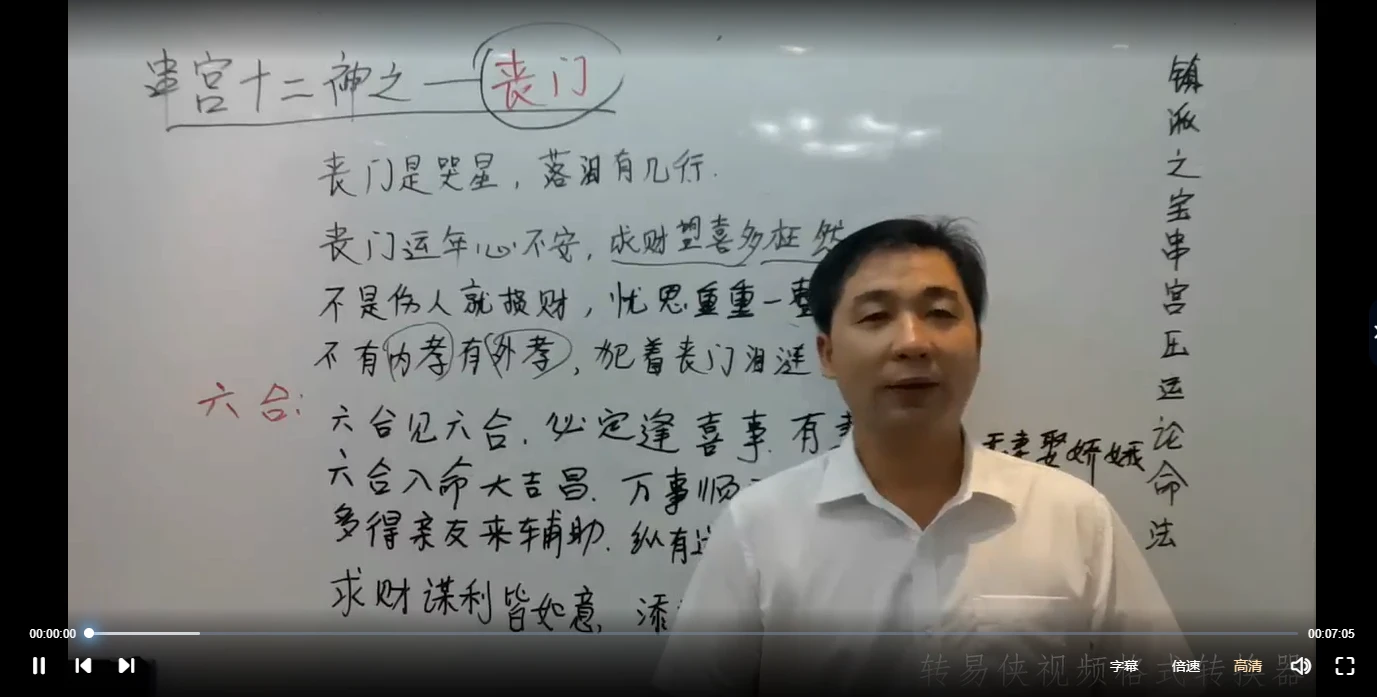 串宫十二神之一丧门
丧门是哭星，落泪有几行.
丧门运年心不安，求财望喜多枉然
不是伤人就损财，忧思重重一整
不有内孝有外孝，犯着丧门泪涟
六合:
六合见六合.必定逢喜事.有
娶娇娥
六合入命大吉昌.万事顺
多得亲友来辅助.纵有
求财谋利皆如意,添
镇派之宝串宫压运论命法
00:00:00
00:07:05
字幕 倍速 高清
转易侠视频格式转换器